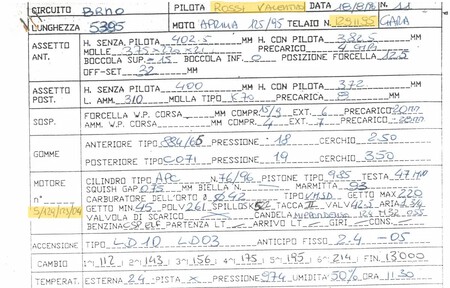 CIRCUITO Brno PILOTA Rossi Valentino DATA 18/8/96 N. 11
LUNGHEZZA 5395 MOTO APRILIA 125/95 TELAIO N. GARA
ASSETTO ANT. H. SENZA PILOTA 402.5 MM H. CON PILOTA 382.5 MM
MOLLE PRECARICO 4 GIRI
BOCCOLA SUP. -15 BOCCOLA INF. 0 POSIZIONE FORCELLA 12.5
OFF-SET 22 MM
ASSETTO POST. H. SENZA PILOTA 400 MM H. CON PILOTA 372 MM
L. AMM. 310 MOLLA TIPO K70 PRECARICA MM
SOSP. FORCELLA W.P. CORSA MM COMPR. 15/9 EXT. 6 PRECARICO
AMM. W.P. CORSA MM COMPR. 4 EXT. 7 PRECARICO
GOMME ANTERIORE TIPO 884/65 PRESSIONE 18 CERCHIO 2.50
POSTERIORE TIPO C071 PRESSIONE 19 CERCHIO 3.50
MOTORE CILINDRO TIPO APC N. 76/96 PISTONE TIPO 985 TESTA
n° SQUISH GAP 075 MM BIELLA N. MARMITTA 93
CARBURATORE DELL'ORTO Ø 42 TIPO VHSD GETTO MAX 220
GETTO MIN 45 POLV 261 SPILLO TACCA VAL ARIA
VALVOLA DI SCARICO CANDELA
BENZINA PARTENZA LT ARRIVO LT GIRI CONS.
ACCENSIONE TIPO LD10 LD03 ANTICIPO FISSO 2.4 -05
CAMBIO 1ª 112 2ª 143 3ª 156 4ª 175 5ª 195 6ª 214 FIN. 13000
TEMPERAT. ESTERNA 24 PISTA x PRESSIONE 974 UMIDITA 50% ORA 11.30